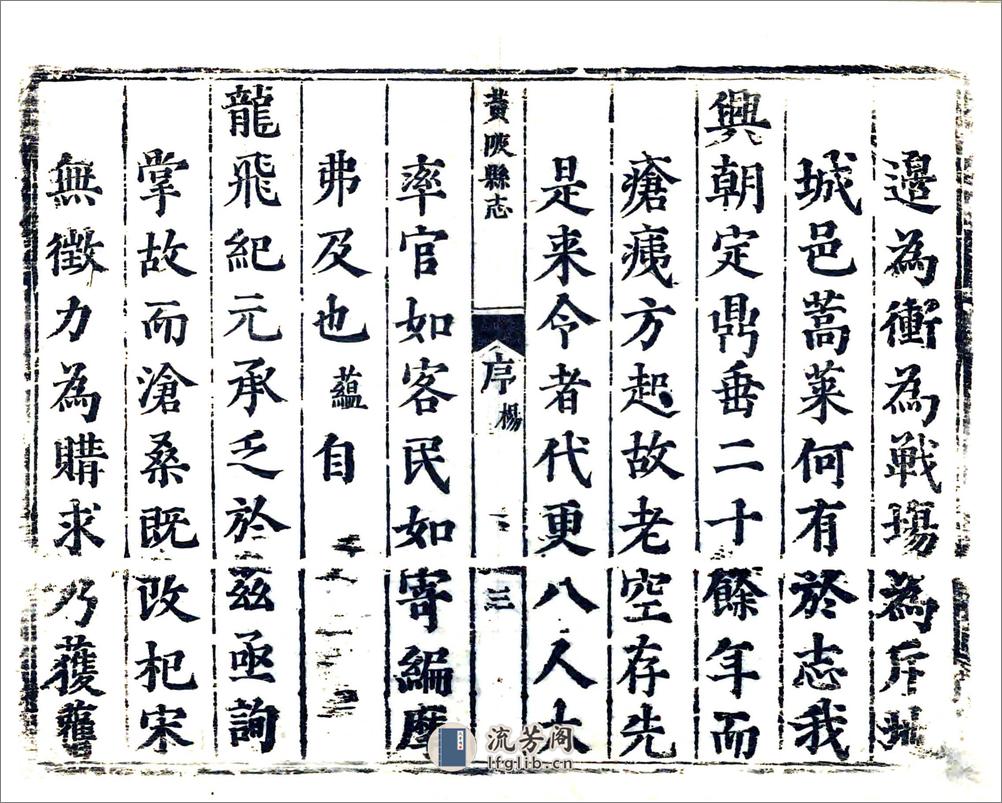 邊為衝為戰塲為斥
城邑蒿萊何有於志我
興朝定鼎垂二十餘年而
瘡痍方起故老空存先
是来令者代更八人大
黃陂縣志
序
楊
三
率官如客民如寄編摩
弗及也蘊自
龍飛紀元承乏於兹亟詢
掌故而滄桑既改杞宋
無徵力為購求乃獲舊
流芳阁
lfglib.cn